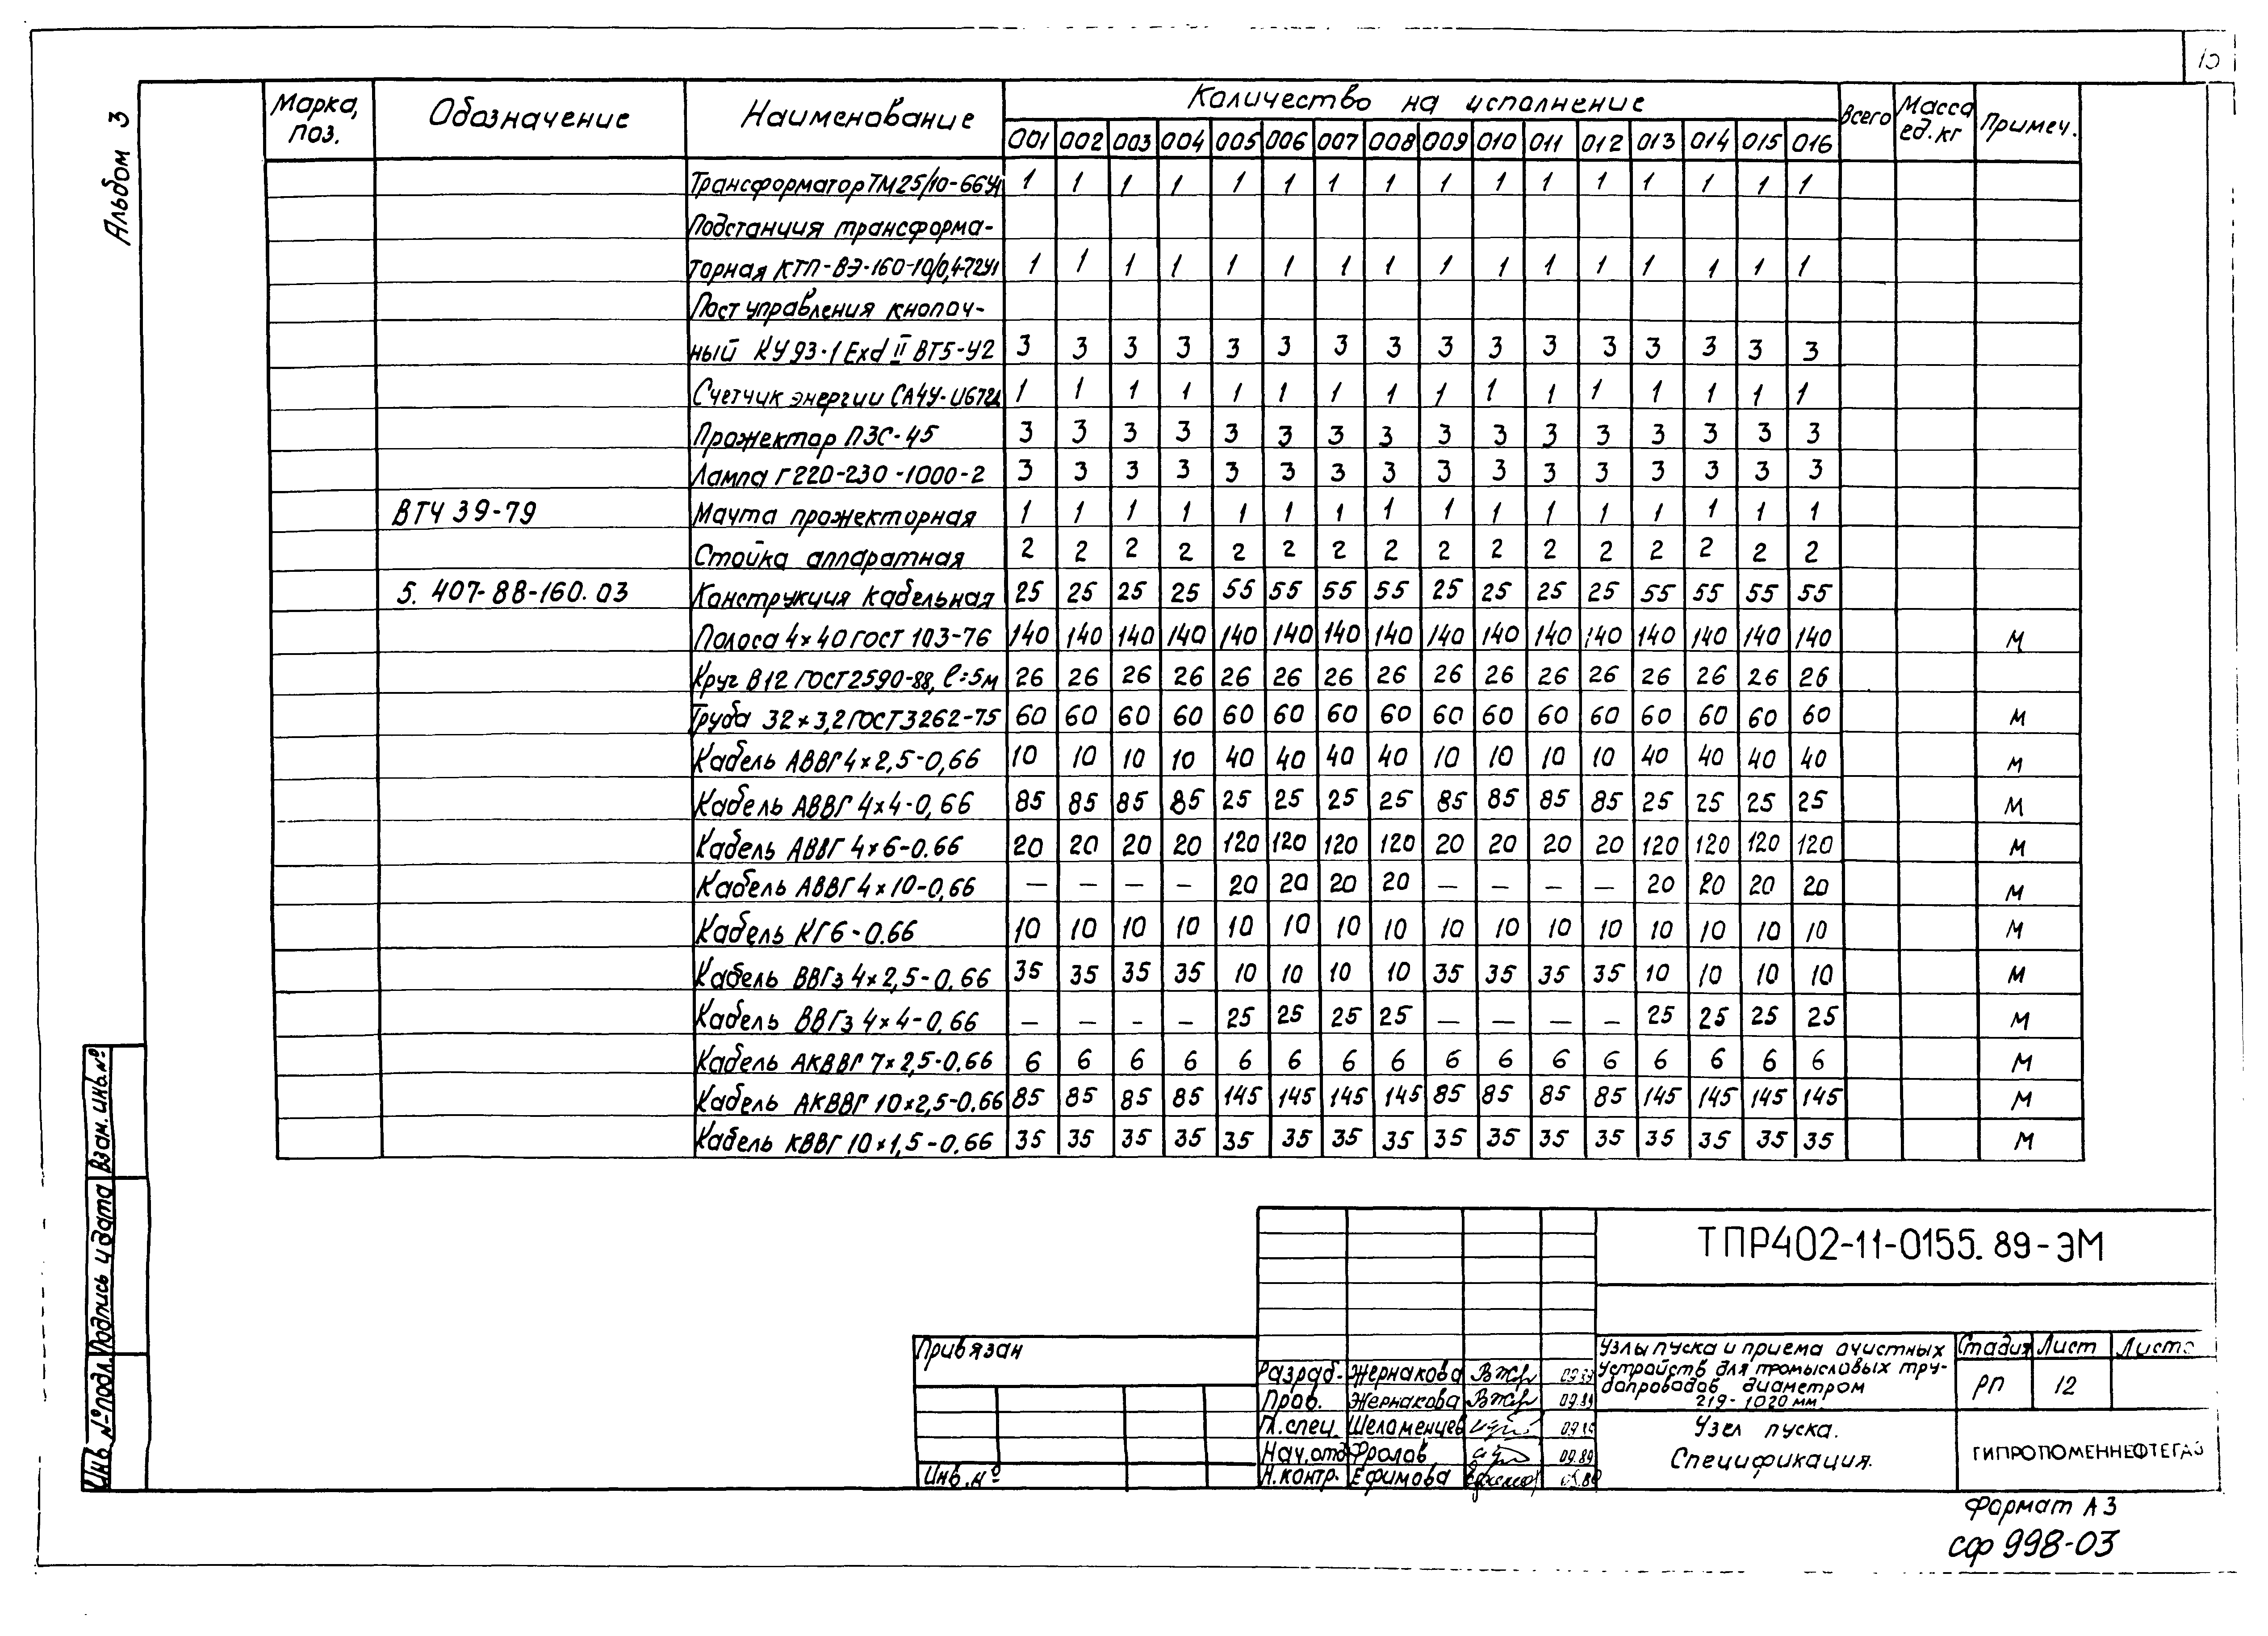 Альбом 3
Марка, поз. Обозначение Наименование Количество на исполнение Всего Масса ед. кг Примеч.
001 002 003 004 005 006 007 008 009 010 011 012 013 014 015 016
Трансформатор ТМ25/10-66У1 1 1 1 1 1 1 1 1 1 1 1 1 1 1 1 1
Подстанция трансформа-
торная КТП-ВЭ-160-10/0,4-72У1 1 1 1 1 1 1 1 1 1 1 1 1 1 1 1 1
Пост управления кнопоч-
ный КУ93-1 Exd II ВТ5-У2 3 3 3 3 3 3 3 3 3 3 3 3 3 3 3 3
Счетчик энергии СА4У-И672Д 1 1 1 1 1 1 1 1 1 1 1 1 1 1 1 1
Прожектор ПЗС-45 3 3 3 3 3 3 3 3 3 3 3 3 3 3 3 3
Лампа Г220-230-1000-2 3 3 3 3 3 3 3 3 3 3 3 3 3 3 3 3
ВТЧ 39-79 Мачта прожекторная 1 1 1 1 1 1 1 1 1 1 1 1 1 1 1 1
Стойка аппаратная 2 2 2 2 2 2 2 2 2 2 2 2 2 2 2 2
5. 407-88-160.03 Конструкция кабельная 25 25 25 25 55 55 55 55 25 25 25 25 55 55 55 55
Полоса 4×40 ГОСТ 103-76 140 140 140 140 140 140 140 140 140 140 140 140 140 140 140 140 м
Круг В12 ГОСТ2590-88, ℓ=5м 26 26 26 26 26 26 26 26 26 26 26 26 26 26 26 26
Труба 32×3,2 ГОСТ3262-75 60 60 60 60 60 60 60 60 60 60 60 60 60 60 60 60 м
Кабель АВВГ 4×2,5-0,66 10 10 10 10 40 40 40 40 10 10 10 10 40 40 40 40 м
Кабель АВВГ 4×4-0,66 85 85 85 85 25 25 25 25 85 85 85 85 25 25 25 25 м
Кабель АВВГ 4×6-0.66 20 20 20 20 120 120 120 120 20 20 20 20 120 120 120 120 м
Кабель АВВГ 4×10-0,66 — — — — 20 20 20 20 — — — — 20 20 20 20 м
Кабель КГ6-0.66 10 10 10 10 10 10 10 10 10 10 10 10 10 10 10 10 м
Кабель ВВГз 4×2,5-0.66 35 35 35 35 10 10 10 10 35 35 35 35 10 10 10 10 м
Кабель ВВГз 4×4-0.66 — — — — 25 25 25 25 — — — — 25 25 25 25 м
Кабель АКВВГ 7×2,5-0.66 6 6 6 6 6 6 6 6 6 6 6 6 6 6 6 6 м
Кабель АКВВГ 10×2,5-0.66 85 85 85 85 145 145 145 145 85 85 85 85 145 145 145 145 м
Кабель КВВГ 10×1,5-0.66 35 35 35 35 35 35 35 35 35 35 35 35 35 35 35 35 м
Инв. № подл. Подпись и дата Взам. инв. №
ТПР402-11-0155.89-ЭМ
Привязан
Инв. №
Разраб. Жернакова
Пров. Жернакова 09.89
Гл. спец. Шеломенцев
Нач. отд. Фролов 09.89
Н. контр. Ефимова
Узлы пуска и приема очистных
устройств для промысловых тру-
бопроводов диаметром
219-1020 мм.
Стадия Лист Листо
РП 12
Узел пуска.
Спецификация.
ГИПРОТЮМЕННЕФТЕГАЗ
Формат А3
сф 998-03